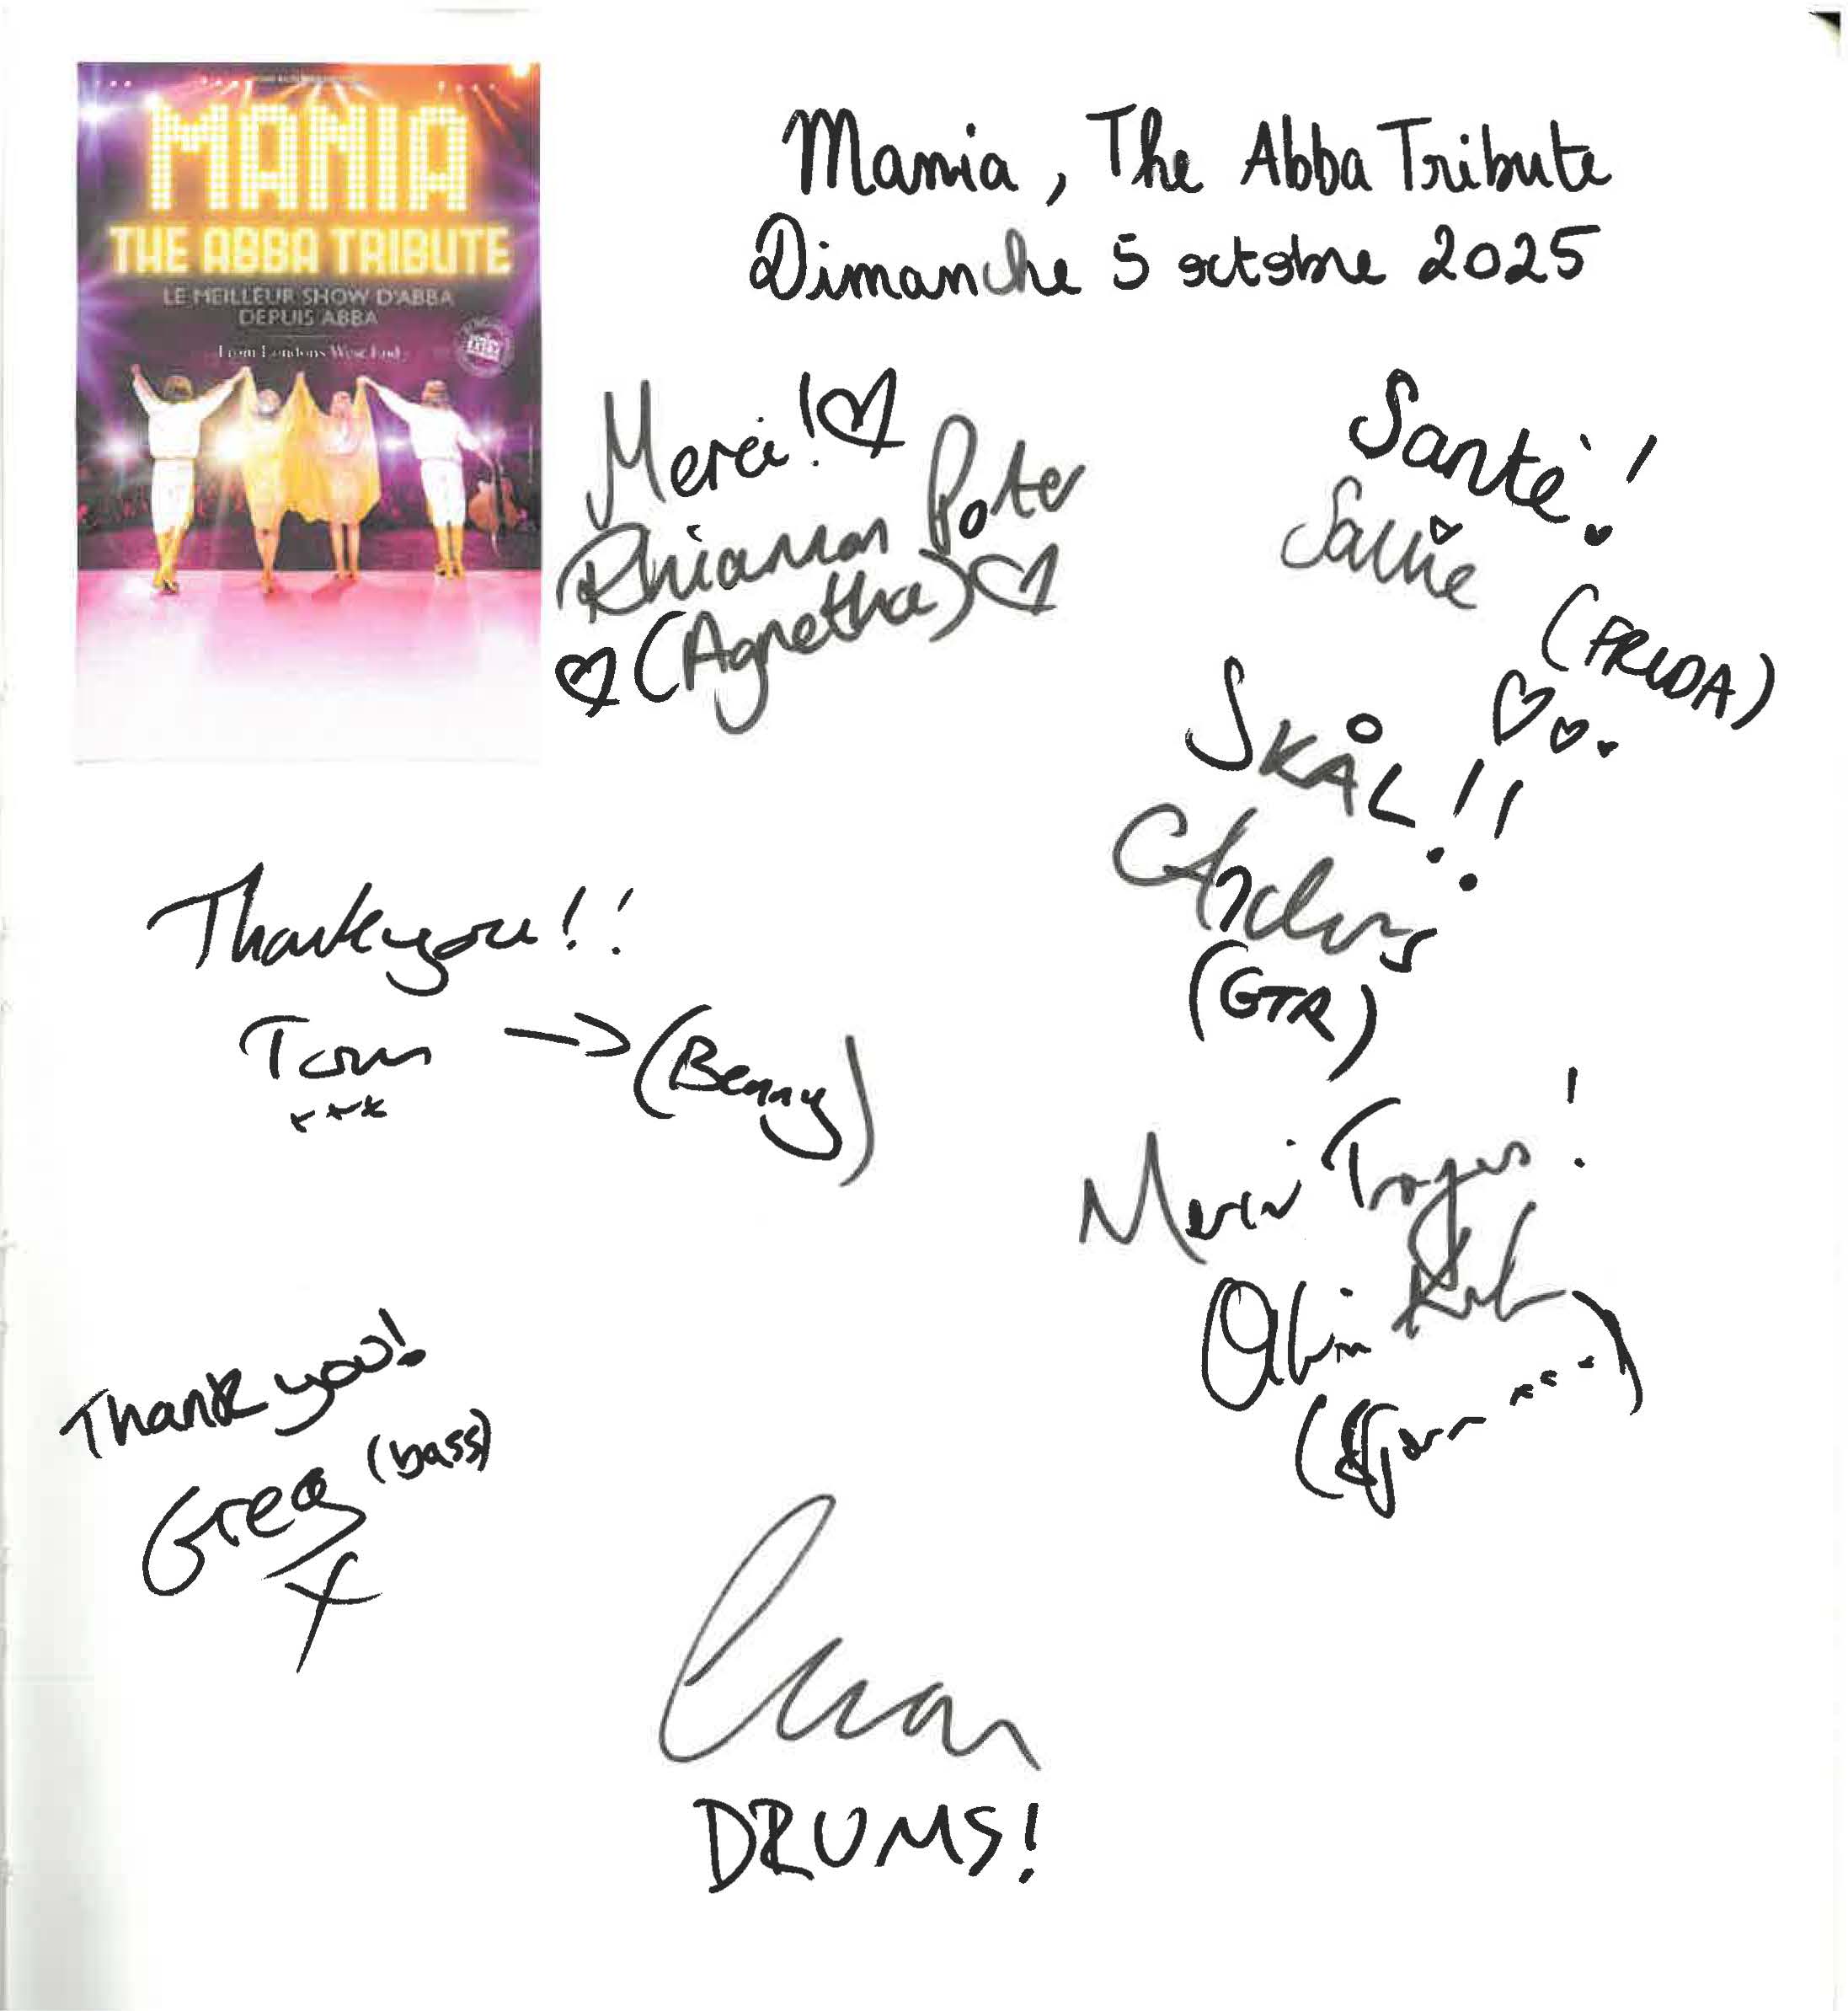 MANIA
THE ABBA TRIBUTE
LE MEILLEUR SHOW D'ABBA
DEPUIS ABBA
From London's West End
Mania, The Abba Tribute
Dimanche 5 octobre 2025
Merci!
Rhiannon Porter
(Agnetha)
Santé!
Sallie
(FRIDA)
SKÅL!!
(GTR)
Thankyou!!
Tom → (Benny)
Merci Troyes!
(Bjorn
Thank you!
Greg (bass)
DRUMS!